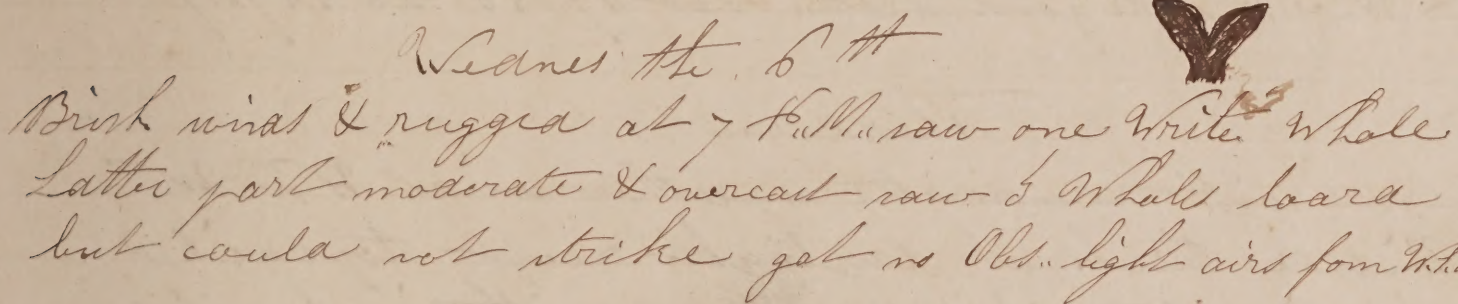 Wednes the 6th
Brisk winds & rugged at 7 P.M. saw one Write Whale
Latter part moderate & overcast saw 5 Whales loard
but could not strike got no Obs.. light airs fom